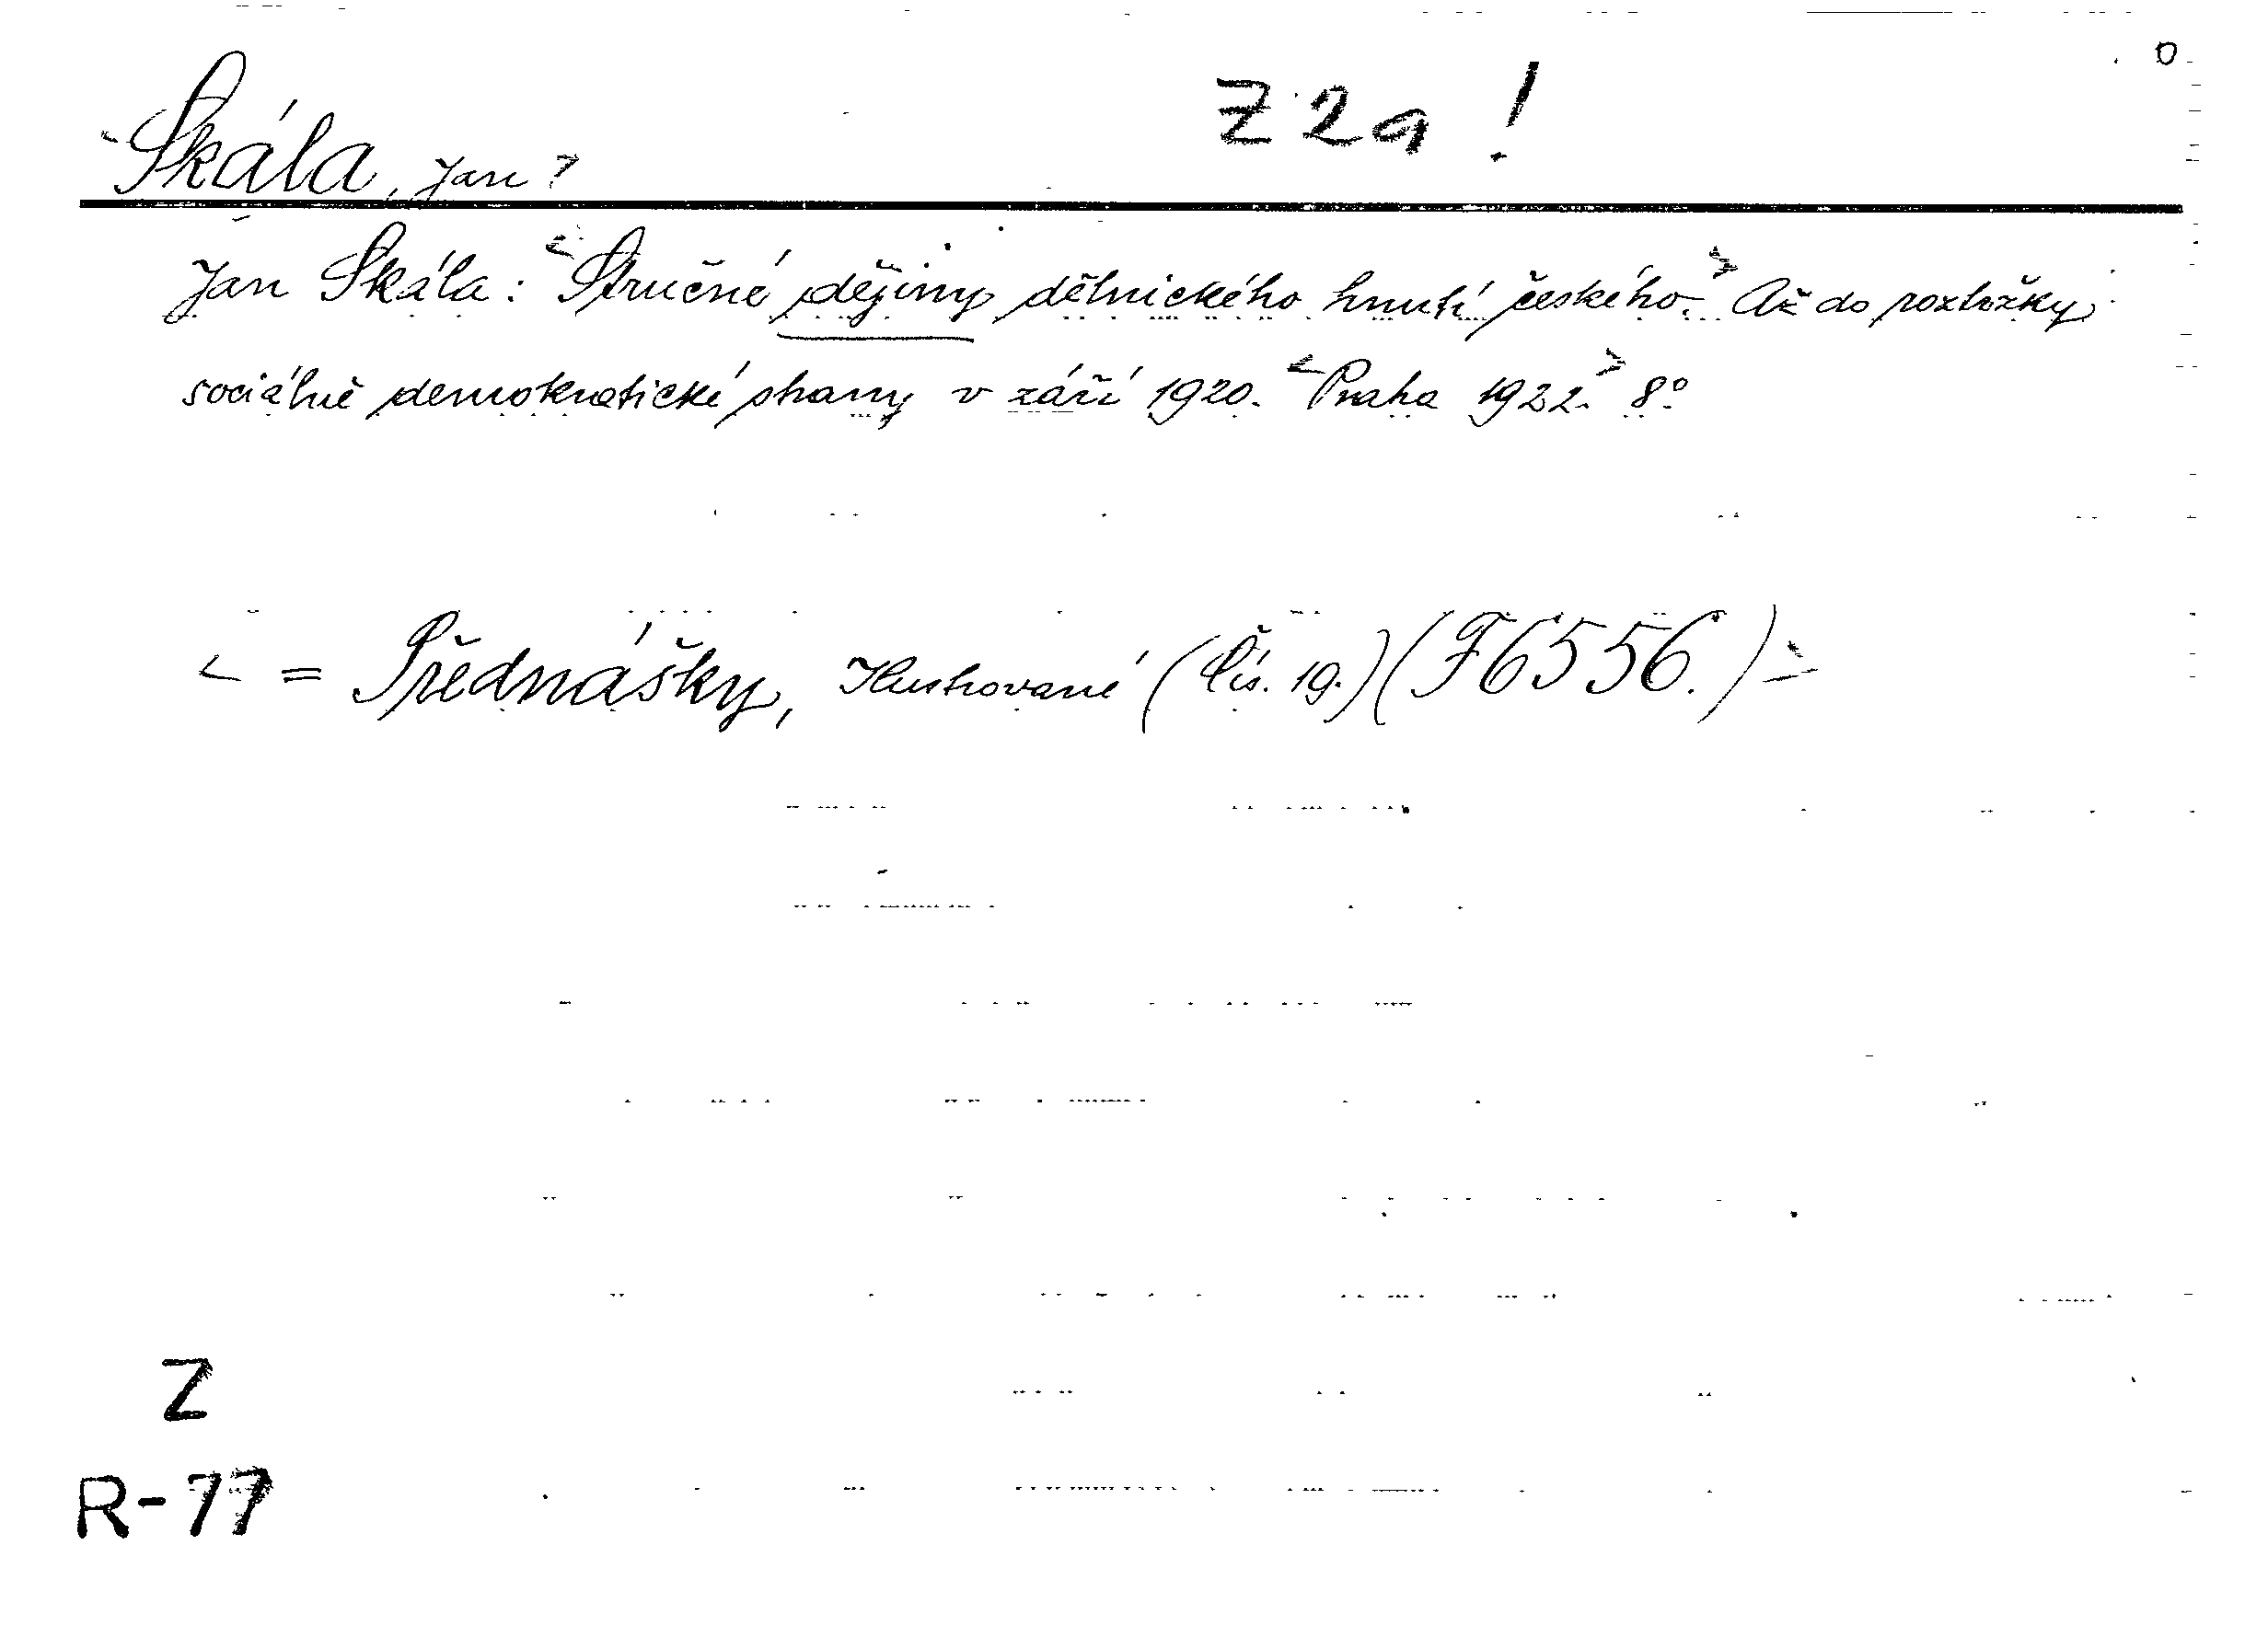 Z 2a !
Skála, Jan ?
Jan Skála: <Stručné dějiny dělnického hnutí českého.> Až do roztržky
sociálně demokratické strany v září 1920. <Praha 1922.> 8°
< = Přednášky, Ilustrované (Čís. 19.) (F6556.) >
Z
R-77